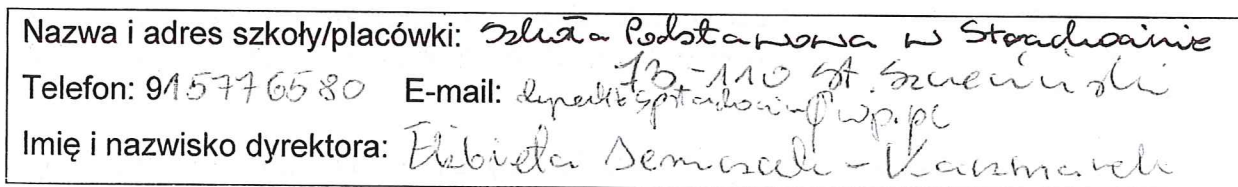 Nazwa i adres szkoły/placówki: Szkoła Podstawowa w Strachocinie
73-110 St. Szczeciński
Telefon: 915776580 E-mail: @wp.pl
Imię i nazwisko dyrektora: Elżbieta - Kaczmarek